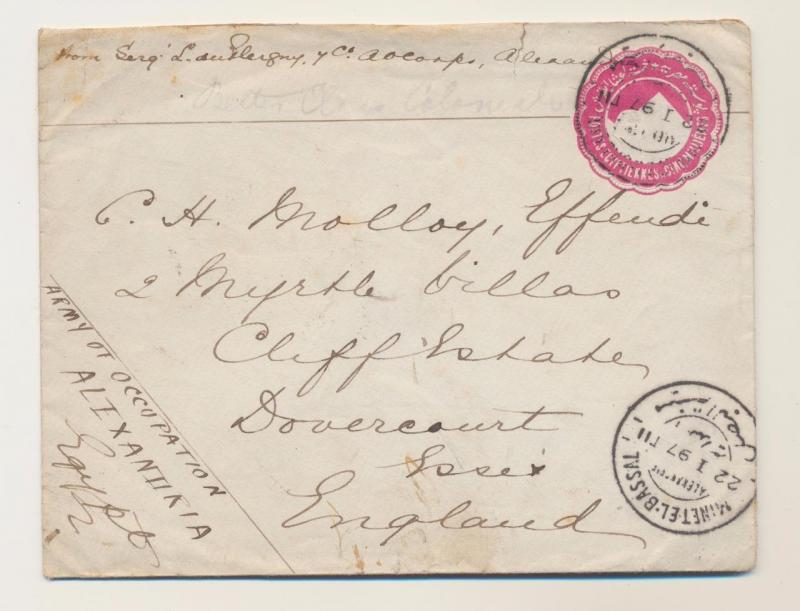 from Serg! L. , 7 C? A O Corps,
C. H. Molloy, Effendi
2 Myrtle Villas
Cliff Estate
Dovercourt
Essex
England
ARMY OF OCCUPATION
ALIXANDRIA
Egypt
I 97
MINET-EL-BASSAL
22 I 97 TII
ALEXANDRIE